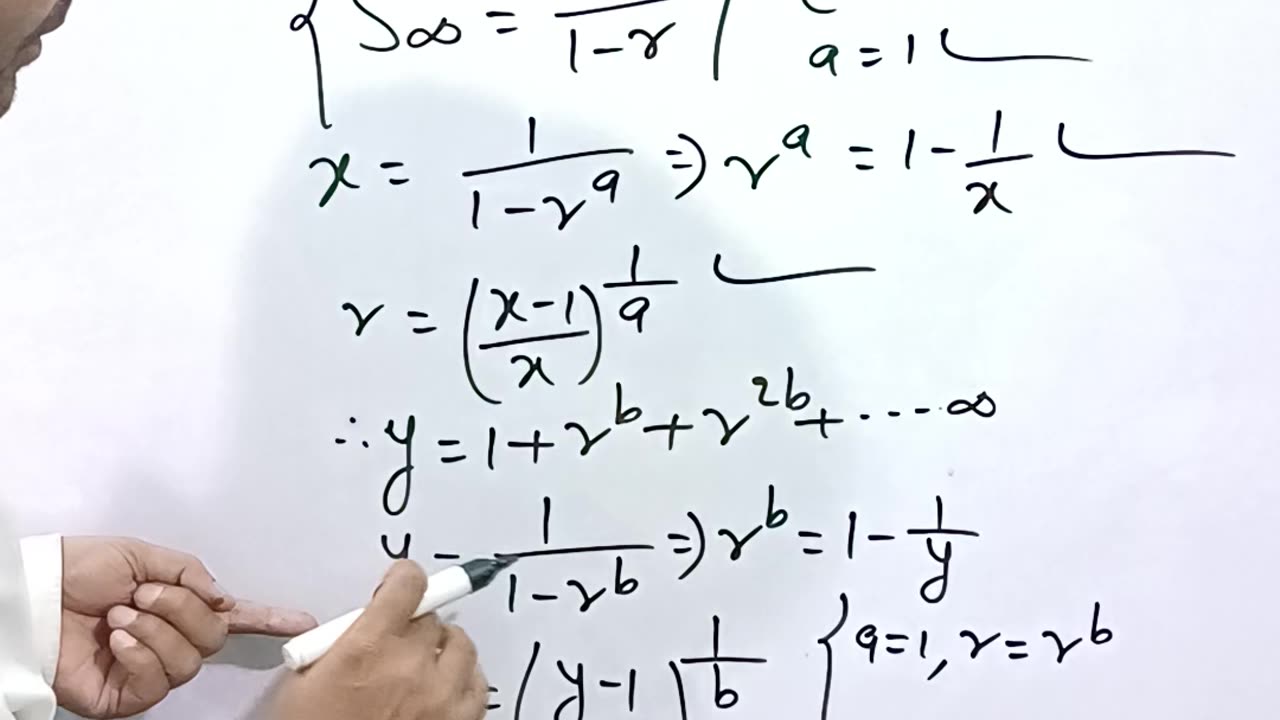 S∞ = ―/1-r a = 1
x = 1/(1-r^a) ⇒ r^a = 1 - 1/x
r = ((x-1)/x)^(1/a)
∴ y = 1 + r^b + r^2b + ---- ∞
y = 1/(1-r^b) ⇒ r^b = 1 - 1/y
= (y-1)^(1/b) { a=1, r = r^b